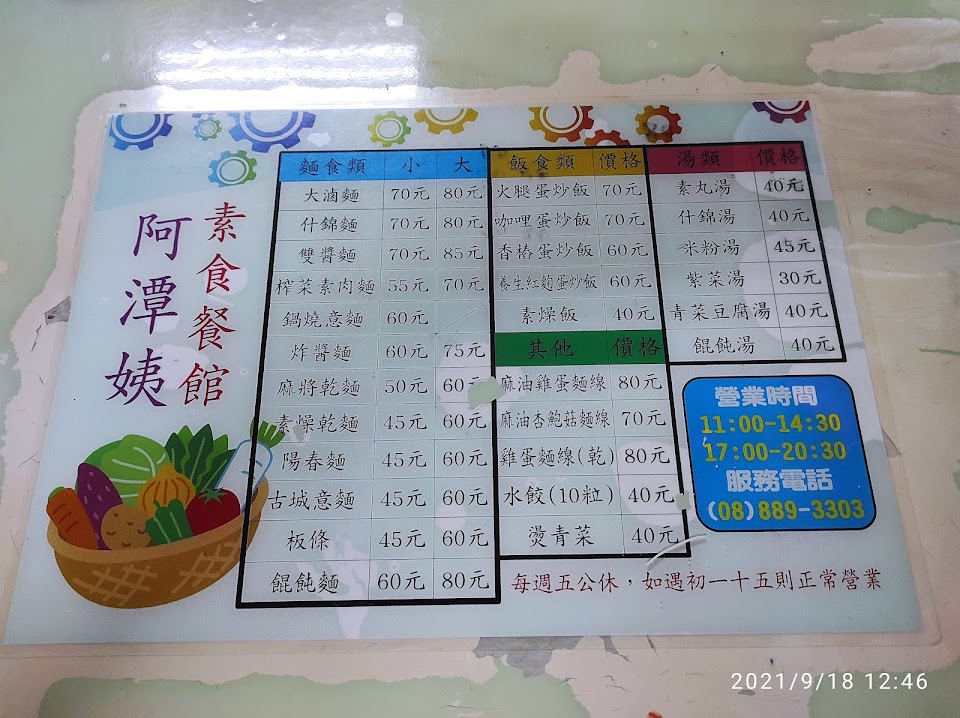 阿潭姨
素食餐館
麵食類 小 大
大滷麵 70元 80元
什錦麵 70元 80元
雙醬麵 70元 85元
榨菜素肉麵 55元 70元
鍋燒意麵 60元
炸醬麵 60元 75元
麻將乾麵 50元 60元
素燥乾麵 45元 60元
陽春麵 45元 60元
古城意麵 45元 60元
板條 45元 60元
餛飩麵 60元 80元
飯食類 價格
火腿蛋炒飯 70元
咖哩蛋炒飯 70元
香椿蛋炒飯 60元
養生紅麴蛋炒飯 60元
素燥飯 40元
其他 價格
麻油雞蛋麵線 80元
麻油杏鮑菇麵線 70元
雞蛋麵線(乾) 80元
水餃(10粒) 40元
燙青菜 40元
湯類 價格
素丸湯 40元
什錦湯 40元
米粉湯 45元
紫菜湯 30元
青菜豆腐湯 40元
餛飩湯 40元
營業時間
11:00-14:30
17:00-20:30
服務電話
(08)889-3303
每週五公休，如遇初一十五則正常營業
2021/9/18 12:46